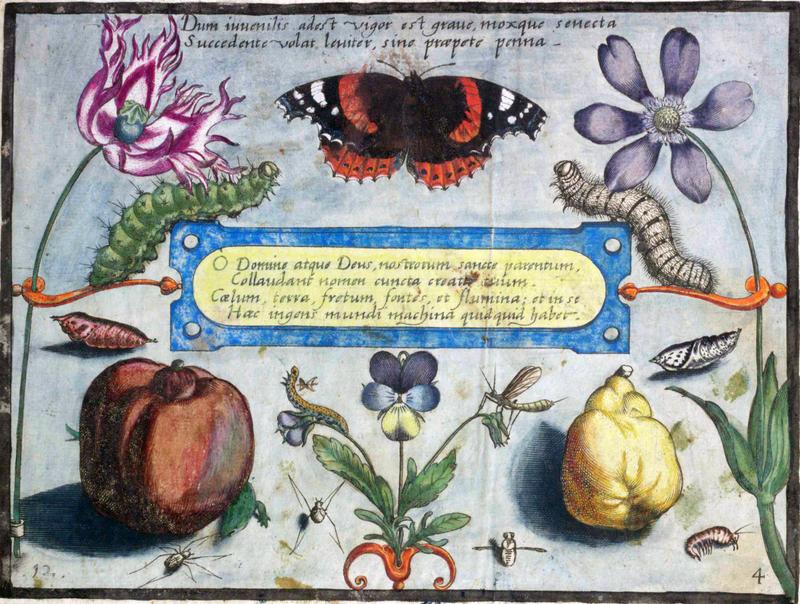 Dum iuvenilis adest vigor est graue, moxque senecta
Succedente volat leuiter, sine præpete penna.
O Domine atque Deus, nostrorum sancte parentum,
Collaudant nomen cuncta creata tuum.
Cælum, terra, fretum, fontes, et flumina; et in se
Hæc ingens mundi machina quidquid habet.
12.
4